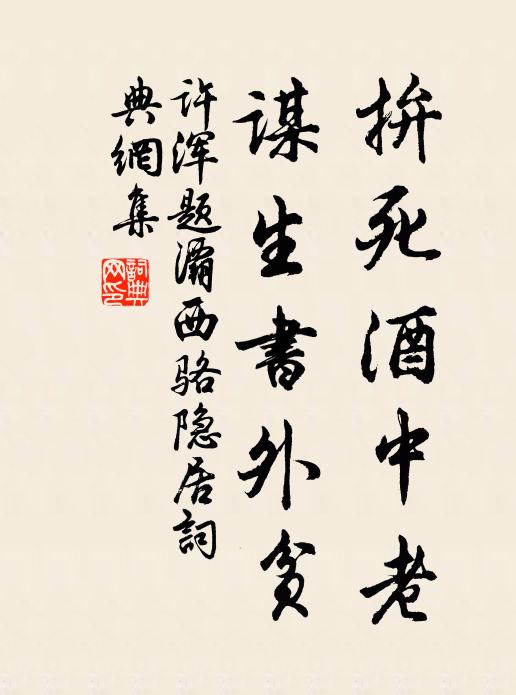 拚死酒中老
謀生書外貧
许浑题灞西骆隐居詞
典網集
詞典
网印